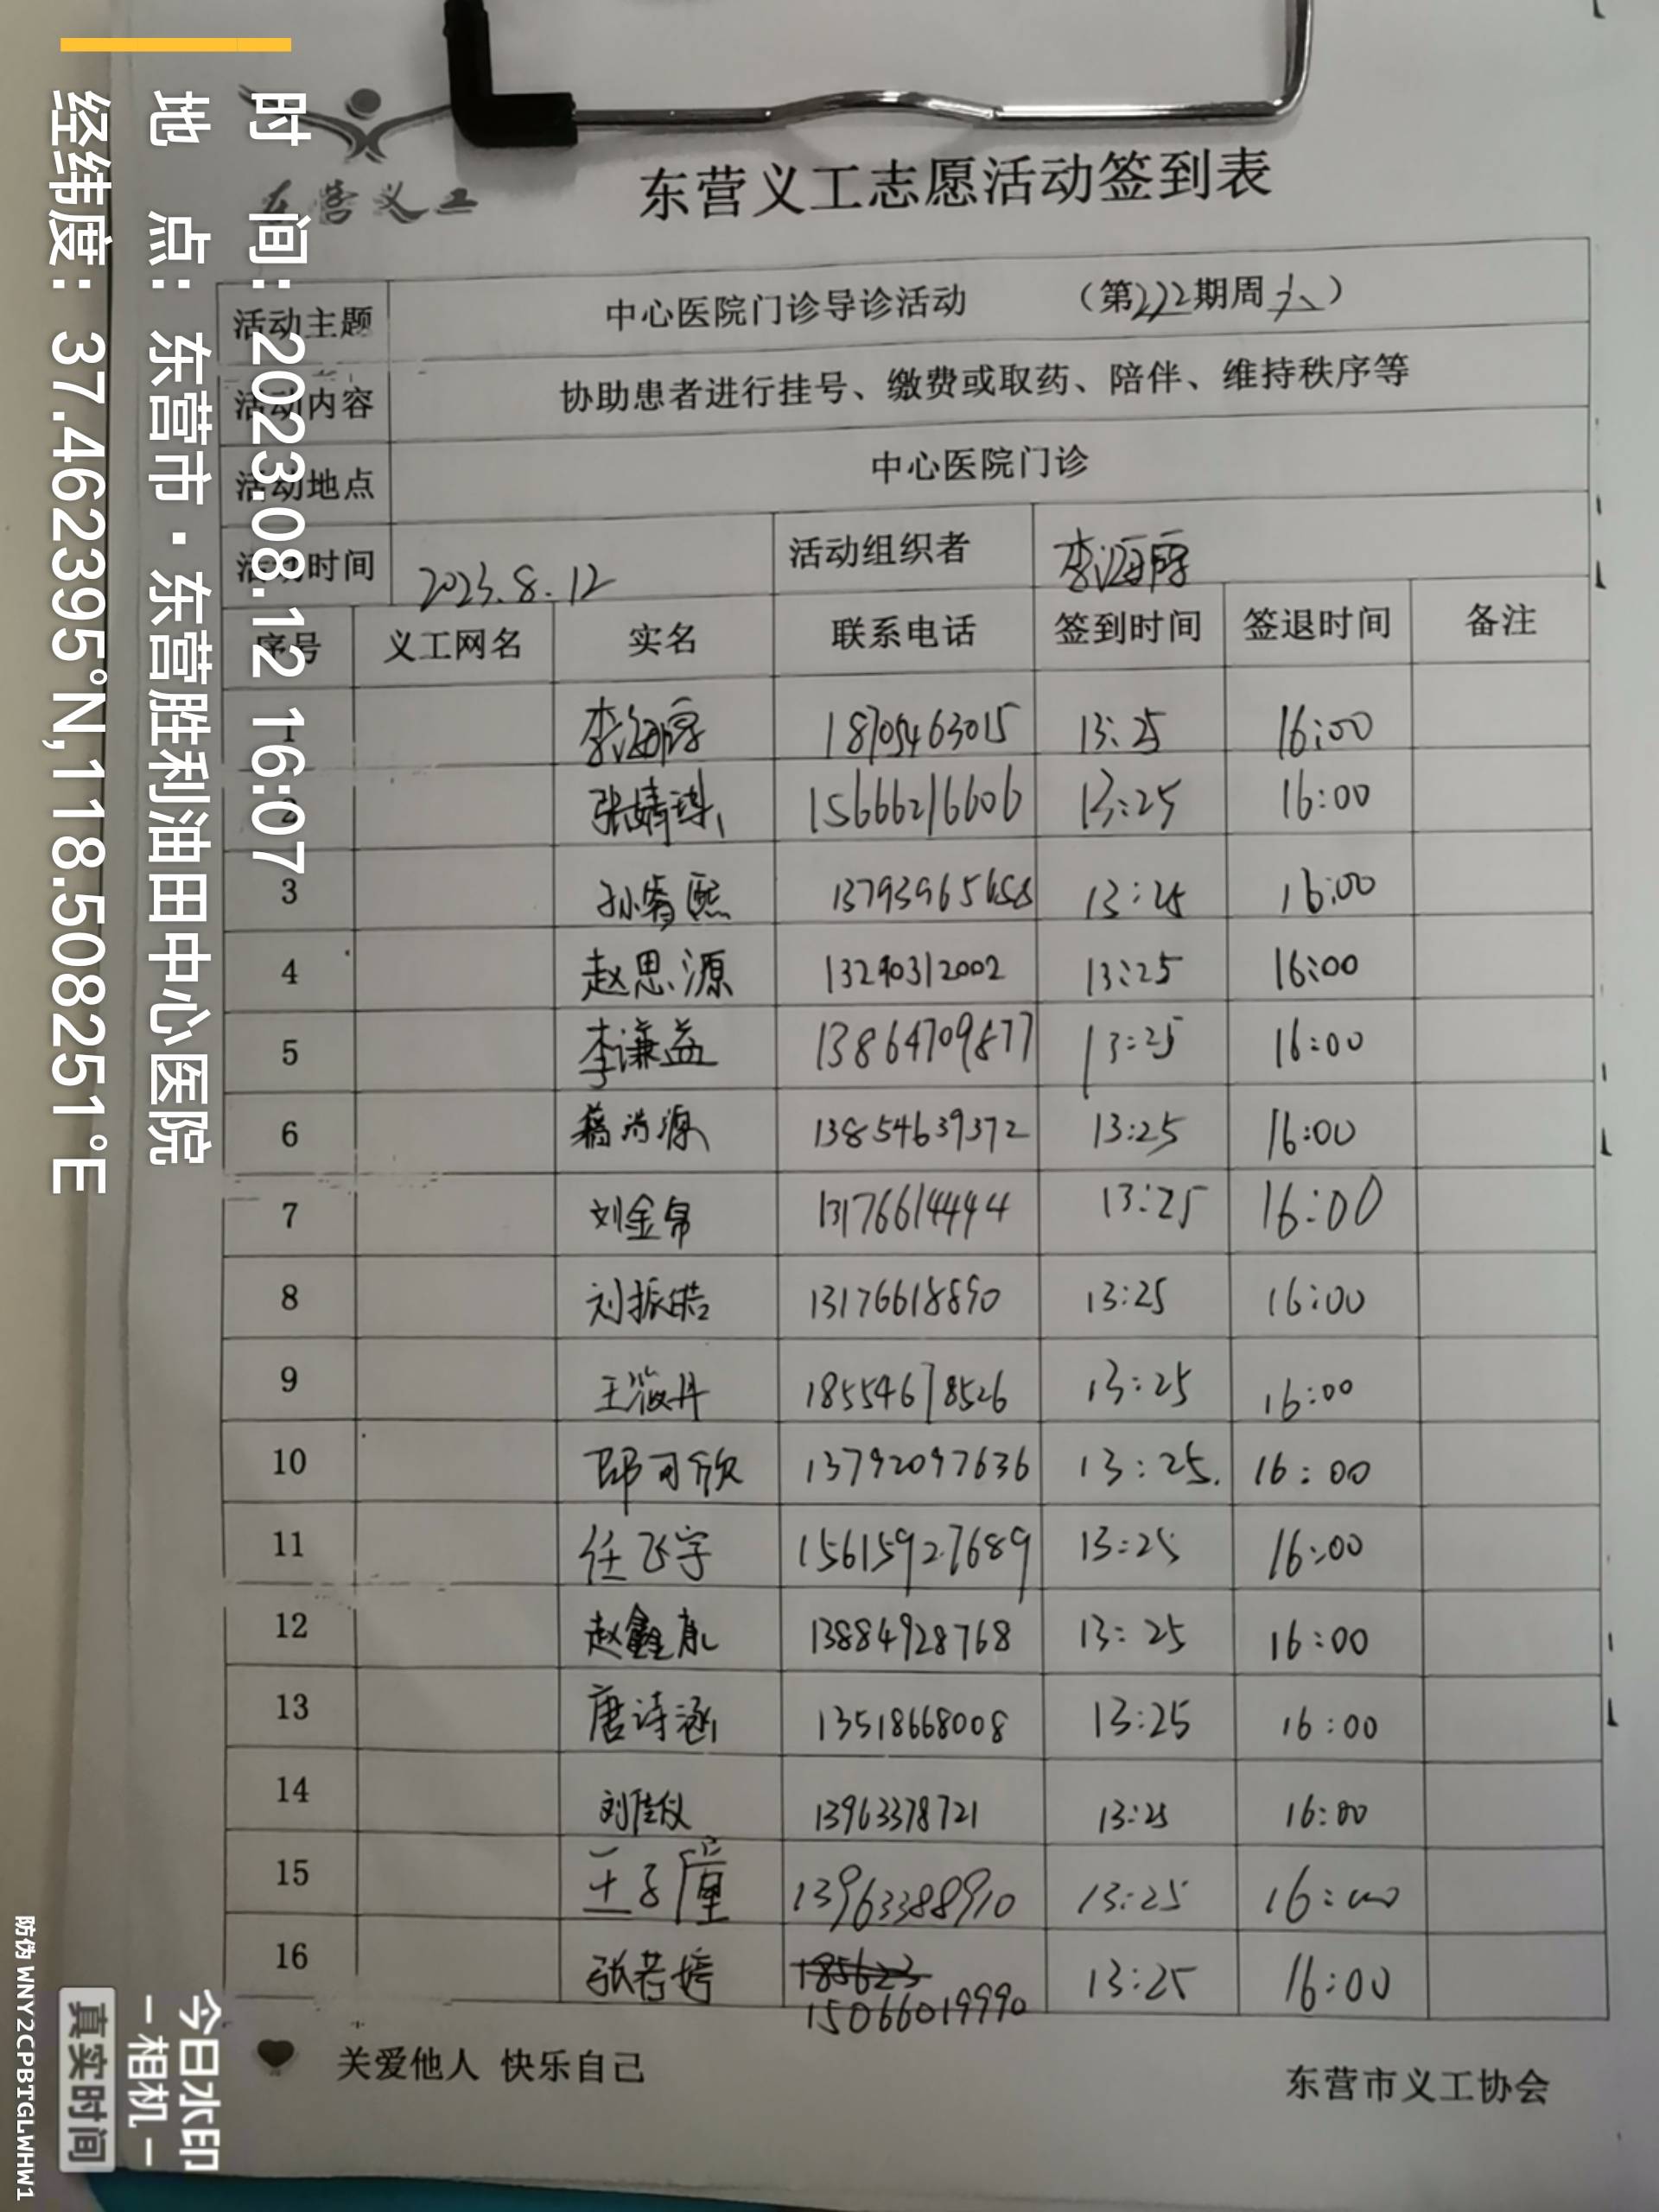 时 间: 2023.08.12 16:07
地 点: 东营市·东营胜利油田中心医院
经纬度: 37.462395°N,118.508251°E
东营义工
东营义工志愿活动签到表
活动主题 中心医院门诊导诊活动 (第222期周六)
活动内容 协助患者进行挂号、缴费或取药、陪伴、维持秩序等
活动地点 中心医院门诊
活动时间 2023.8.12 活动组织者 李海
序号 义工网名 实名 联系电话 签到时间 签退时间 备注
1 李海 18705463015 13:25 16:00
2 张婧琪 15666216606 13:25 16:00
3 孙睿熙 13793965658 13:25 16:00
4 赵思源 13290312002 13:25 16:00
5 李谦益 13864709877 13:25 16:00
6 尚源 13854639372 13:25 16:00
7 刘金帛 13176614494 13:25 16:00
8 刘振皓 13176618890 13:25 16:00
9 王丹 18554678526 13:25 16:00
10 邵可欣 13792097636 13:25. 16:00
11 任飞宇 15615927689 13:25 16:00
12 赵鑫康 13884928768 13:25 16:00
13 唐诗涵 13518668008 13:25 16:00
14 刘佳仪 13963378721 13:25 16:00
15 王子 13963388910 13:25 16:00
16 张若婷 185623 13:25 16:00
15066019990
关爱他人 快乐自己
东营市义工协会
今日水印
相机
真实时间
防伪 WNY2CPBTGLWHW1